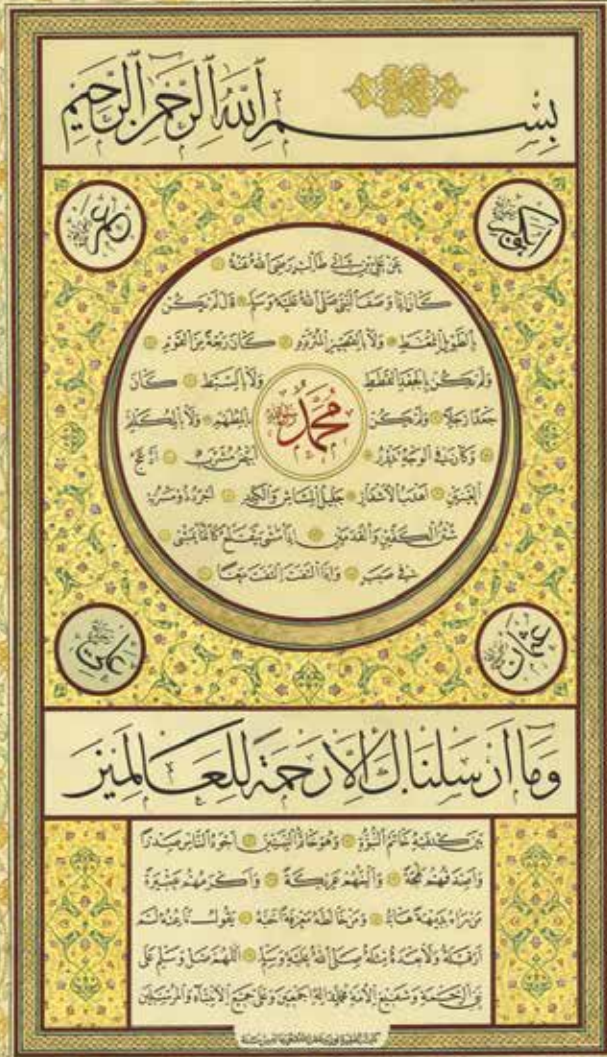 بِسْمِ اللهِ الرَّحْمٰنِ الرَّحِيمِ
ابوبكر
عمر
عن علي بن ابي طالب رضي الله عنه
كان اذا وصف النبي صلى الله عليه وسلم قال لم يكن
بالطويل الممغط ولا بالقصير المتردد كان ربعة من القوم
ولم يكن بالجعد القطط ولا بالسبط كان
جعدا رجلا ولم يكن بالمطهم ولا بالمكلثم
محمد
وكان في الوجه تدوير ابيض مشرب ادعج
العينين اهدب الاشفار جليل المشاش والكتد اجرد ذو مسربة
شثن الكفين والقدمين اذا مشى يتقلع كانما يمشي
في صبب واذا التفت التفت معا
عثمان
علي
وَمَا اَرْسَلْنَاكَ اِلَّا رَحْمَةً لِلْعَالَمِينَ
بين كتفيه خاتم النبوة وهو خاتم النبيين اجود الناس صدرا
واصدقهم لهجة والينهم عريكة واكرمهم عشيرة
من راه بديهة هابه ومن خالطه معرفة احبه يقول ناعته لم
ار قبله ولا بعده مثله صلى الله عليه وسلم اللهم صل وسلم على
نبي الرحمة وشفيع الامة محمد واله اجمعين وعلى جميع الانبياء والمرسلين